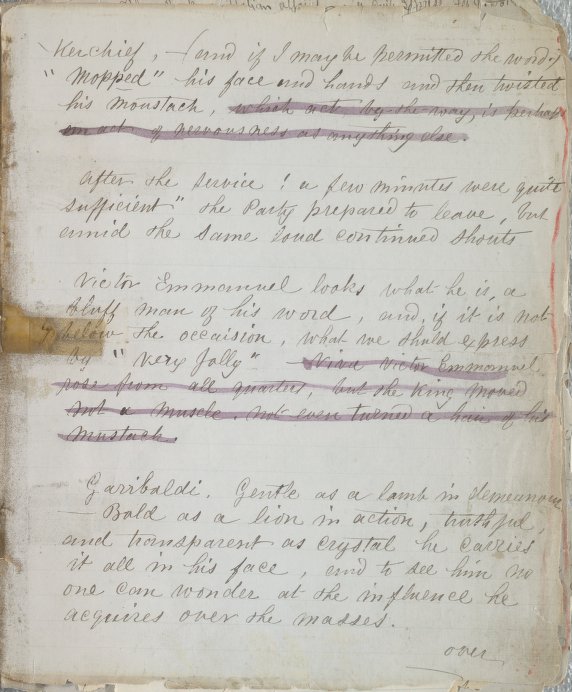 Kerchief, - (and if I may be permitted the word-)
"mopped" his face and hands and then twisted
his moustach, which act by the way, is perhaps
an act of nervousness as anything else.
After the service ! a few minutes were quite
sufficient" the Party prepared to leave, but
amid the same loud continued shouts
Victor Emmanuel looks what he is, a
bluff man of his word, and, if it is not
below the occaision, what we should express
by "Very Jolly" - Viva Victor Emmanuel
rose from all quarters, but the King moved
not a muscle. not even turned a hair of his
mustach.
Garibaldi. Gentle as a lamb in demeanour
- Bold as a lion in action, truthful
and transparent as crystal he carries
it all in his face, and to see him no
one can wonder at the influence he
acquires over the masses.
over